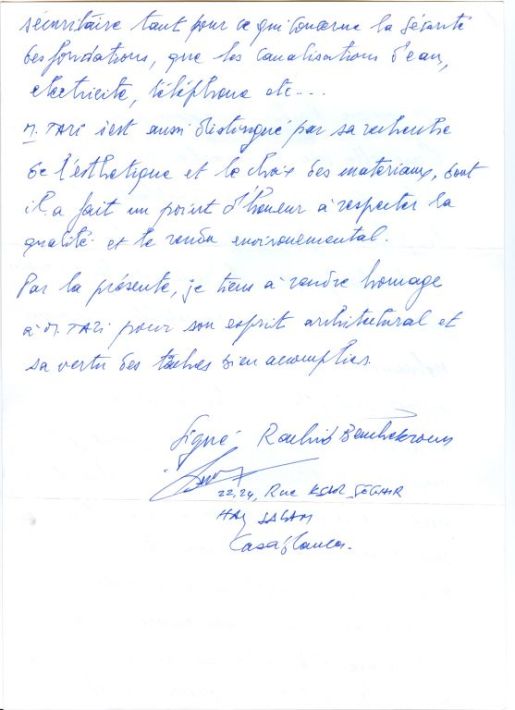 sécuritaire tant pour ce qui concerne la sécurité
des fondations, que les canalisations d'eau,
électricité, téléphone etc...
M. TARI s'est aussi distingué par sa recherche
de l'esthétique et le choix des materiaux, dont
il a fait un point d'honeur à respecter la
qualité et le rendu environemental.
Par la présente, je tiens à rendre homage
à M. TARI pour son esprit architectural et
sa vertu des tâches bien accomplies.
Signé: Rachid Benchekroun
22.24, Rue KSAR SEGHIR
HAY SALAM
Casablanca.